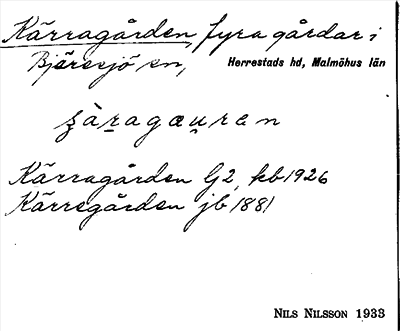 Kärragården, fyra gårdar i
Bjäresjö sn, Herrestads hd, Malmöhus län
Kärragården G2, kb 1926
Kärregården jb 1881
NILS NILSSON 1933